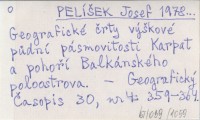 PELÍŠEK Josef 1978...
Geografické črty výškové
půdní pásmovitosti Karpat
a pohoří Balkánského
poloostrova. – Geografický
Časopis 30, nr 4: 359-364.